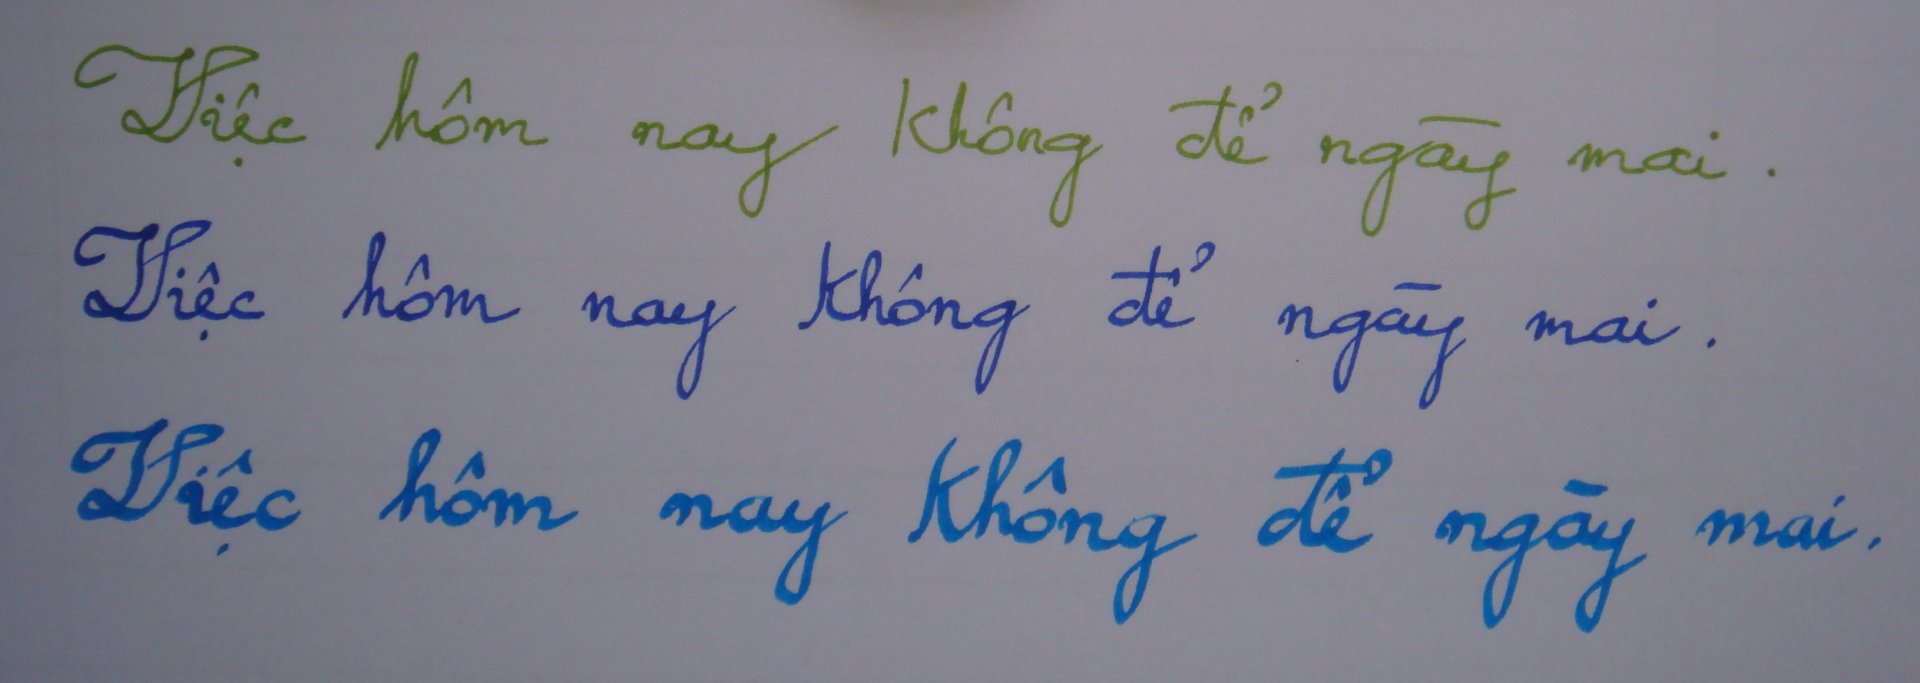 Việc hôm nay không để ngày mai.
Việc hôm nay không để ngày mai.
Việc hôm nay không để ngày mai.